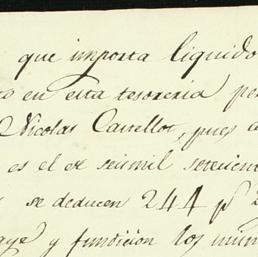 que importa liquido
en esta tesoreria per
Nicolas Castellot, pues
es el de seismil setecien
se deducen 244 p
y fundicion los mism